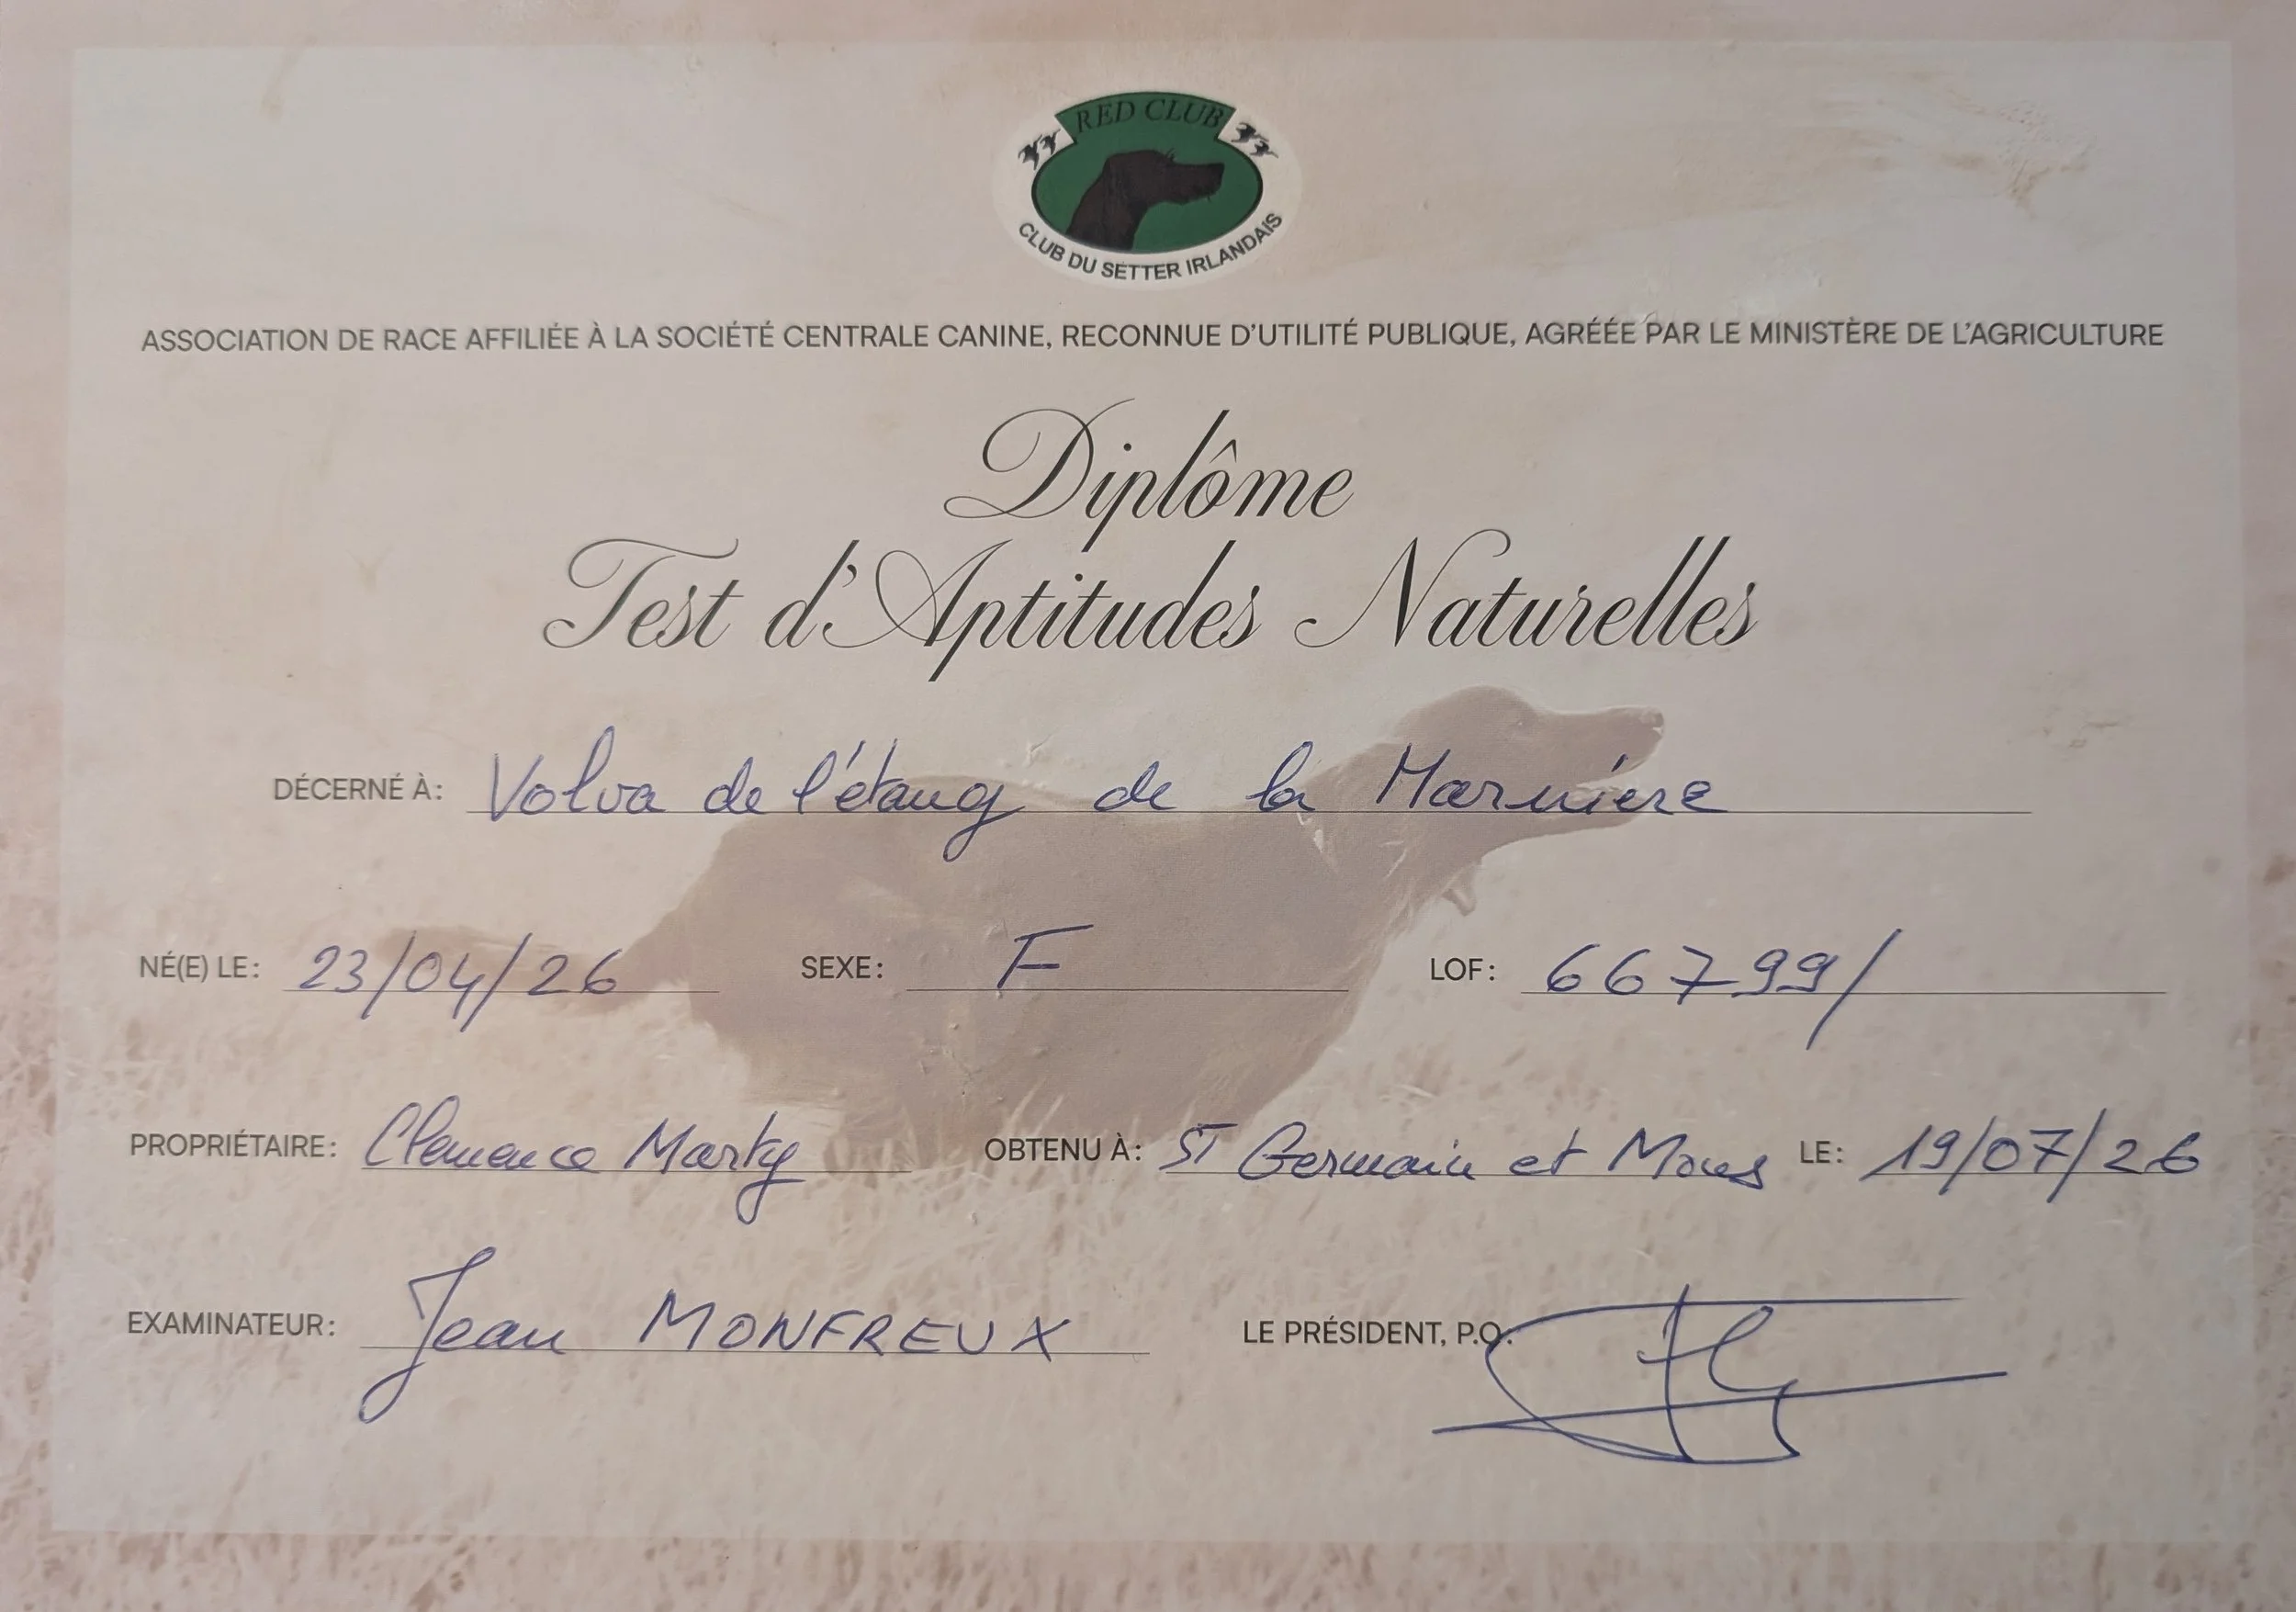 RED CLUB
CLUB DU SETTER IRLANDAIS
ASSOCIATION DE RACE AFFILIÉE À LA SOCIÉTÉ CENTRALE CANINE, RECONNUE D'UTILITÉ PUBLIQUE, AGRÉÉE PAR LE MINISTÈRE DE L'AGRICULTURE
Diplôme
Test d'Aptitudes Naturelles
DÉCERNÉ À: Volva de l'étang de la Marnière
NÉ(E) LE: 23/04/26 SEXE: F LOF: 66799/
PROPRIÉTAIRE: Clemence Marty OBTENU À: ST Germain et Mons LE: 19/07/26
EXAMINATEUR: Jean MONFREUX LE PRÉSIDENT, P.O.